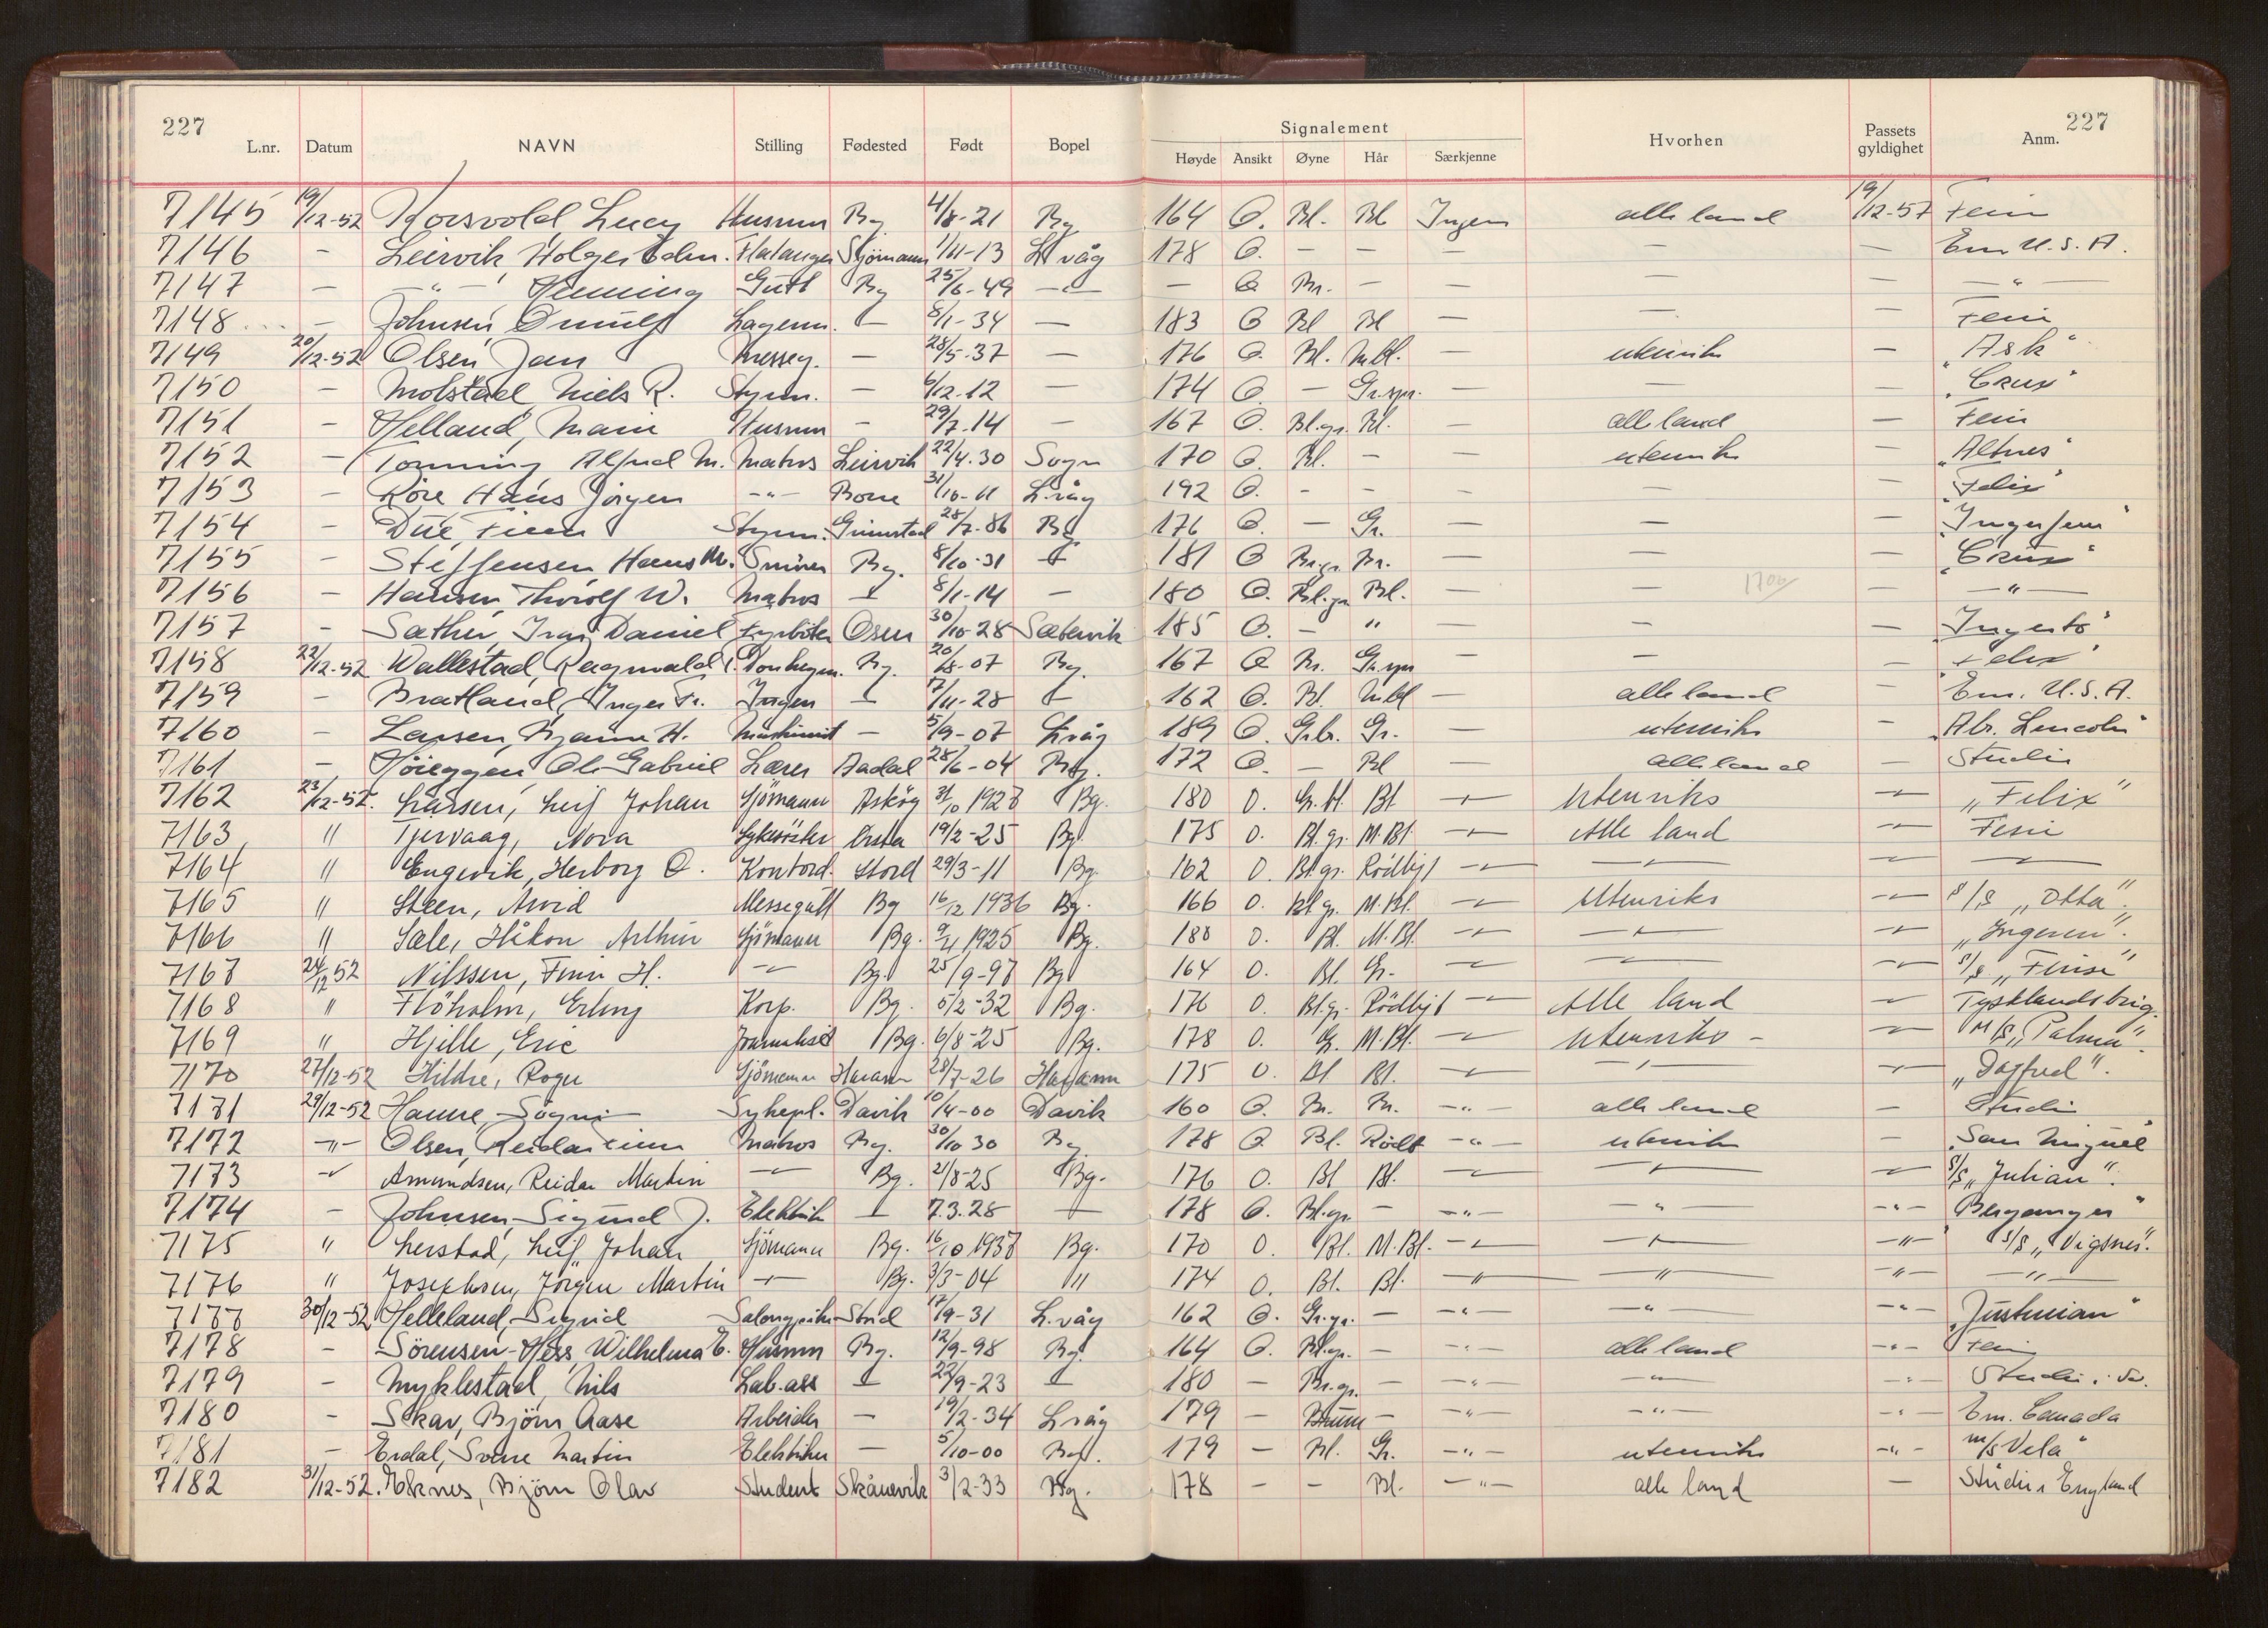 227 227
L.nr. Datum NAVN Stilling Fødested Født Bopel Signalement Høyde Ansikt Øyne Hår Særkjenne Hvorhen Passets gyldighet Anm.
7145 19/12-52 Korsvold, Lucy Husmm Bg. 4/8-21 Bg. 164 O. Bl. Bl Ingen alle land 19/12-57 Ferie
7146 - Leirvik Holger Edm. Flatanger Sjömann 1/11-13 L.våg 178 O. - - - - - Em U.S.A.
7147 - -"- Henning Gutt Bg 25/6-49 -"- - O Br. - - - - -"-
7148 - Johnsen, Ornulf Lagerm. - 8/1-34 - 183 O Bl Bl - - - Ferie
7149 20/12-52 Olsen, Jan Messeg. - 28/5-37 - 176 O. Bl. M.bl. - utenriks - "Ask"
7150 - Molstad Niels R. Styrm. - 6/12.12 - 174 O. - Gr.spr. - - - "Crux"
7151 - Helland, Marie Husmm - 29/7.14 - 167 O. Bl.gr. Bl. - alle land - Ferie
7152 - Tonning Alfred M. Matros Leirvik 22/4.30 Sogn 170 O. Bl. - - utenriks - "Altnes"
7153 - Röre Hans Jörgen -"- Borre 31/10-11 L.våg 192 O. - - - - - "Felix"
7154 - Due, Finn Styrm. Grimstad 28/7.86 Bg 176 O. - Gr. - - - "Ingerfem"
7155 - Steffensen Hans M. Smörer Bg. 8/10-31 - 181 O Br.gr. Br. - - - "Crux"
7156 - Hansen, Thorolf W. Matros - 8/1-14 - 180 O. Bl.gr Bl. - 1700 - -"-
7157 - Sæther, Ivar Daniel Fyrböter Osen 30/10-28 Sætervik 185 O. - " - - - "Ingerto"
7158 22/12-52 Wallestad, Ragnvald Bg. 20/8-07 Bg. 167 O Br. Gr.spr - - - "Felix"
7159 - Bratland, Inger Fr. Ingen - 7/11-28 - 162 O. Bl. M.bl - alle land - Em. U.S.A.
7160 - Larsen, Bjarne H. Maskinist - 5/9-07 L.våg 189 O. Gr.br. Gr. - utenriks - "Abr. Lincoln"
7161 - Höieggen Ole Gabriel Lærer Aadal 28/6-04 Bg. 172 O. - Bl alle land - Studie
7162 23/12-52. Larsen, Leif Johan Sjömann Asköy 31/10 1927 Bg. 180 O. Gr.bl. Bl -"- Utenriks -"- "Felix"
7163 " Tjervaag, Nora Sykesöster Ørsta 19/2-25 Bg. 175 O. Bl.gr. M.Bl. -"- Alle land -"- Ferie
7164 " Engevik, Herborg O. Kontord. Stord 29/3-11 Bg. 162 O. Bl.gr. Rödlig -"- -"- -"- -"-
7165 " Steen, Arvid Messegutt Bg 16/12 1936 Bg. 166 O. Bl.gr. M.Bl. -"- Utenriks -"- s/s "Otta".
7166 " Sæle, Håkon Arthur Sjömann Bg. 9/11 1925 Bg. 188 O. Bl. M.Bl. -"- -"- -"- "Ingeren".
7167 24/12 52 Nilssen, Finn H. -"- Bg. 25/9-97 Bg 164 O. Bl. Gr. -"- -"- -"- s/s "Finse"
7168 " Flöholm, Erling Korp. Bg. 5/2-32 Bg. 176 O. Bl.gr. Rödlig -"- Alle land -"- Tysklandsbrig.
7169 " Hjelle, Eric Bg. 6/8-25 Bg. 178 O. Gr. M.Bl. -"- Utenriks - -"- M/S "Palma".
7170 27/12-52 Hildre, Roger Sjömann Haram 28/7-26 Haram 175 O. Bl Bl. -"- -"- -"- "Dagfred".
7171 29/12-52 Hause, Sögni Sykepl. Davik 10/4-00 Davik 160 O. Br. Br. -"- alle land - Studie
7172 -"- Olsen, Reidar Finn Matros Bg. 30/10 30 Bg 178 O Bl. Rödt -"- utenriks - "San Miguel"
7173 -"- Amundsen, Reidar Martin -"- Bg. 21/8-25 Bg. 176 O. Bl Bl. -"- -"- -"- S/S "Julian".
7174 - Johnsen, Sigurd J. Elektrik - 7.3.28 - 178 O. Bl.gr. - -"- -"- -"- "Berganger"
7175 " Lerstad, Leif Johan Sjömann Bg. 16/10 1937 Bg. 170 O. Bl. M.Bl. -"- -"- -"- S/S "Vigsnes".
7176 " Josephsen, Jörgen Martin -"- Bg. 3/3-04 " 174 O. Bl. Bl. -"- -"- -"- -"-
7177 30/12-52 Helleland, Sigrid Salongpike Strid 17/9-31 L.våg 162 O. Gr.gr. - -"- -"- -"- "Justinian"
7178 - Sörensen-Hess Wilhelmia E. Husmm Bg. 12/9-98 Bg. 164 O. Bl.gr. - -"- alle land -"- Ferie
7179 - Myklestad, Nils Lab.ass - 22/9-23 - 180 - Br.gr. - -"- -"- -"- Studie i Sv.
7180 - Skar, Björn Aase Arbeider - 19/2-34 L.våg 179 - Brune - -"- -"- -"- Em. Canada
7181 - Erdal, Sverre Martin Elektriker - 5/10-00 Bg. 179 - Bl. Gr. -"- utenriks -"- "m/s Vela"
7182 31/12-52. Eknes, Björn Olav Student Skånevik 3/2-33 Bg. 178 - - Bl. -"- alle land - Studie i England